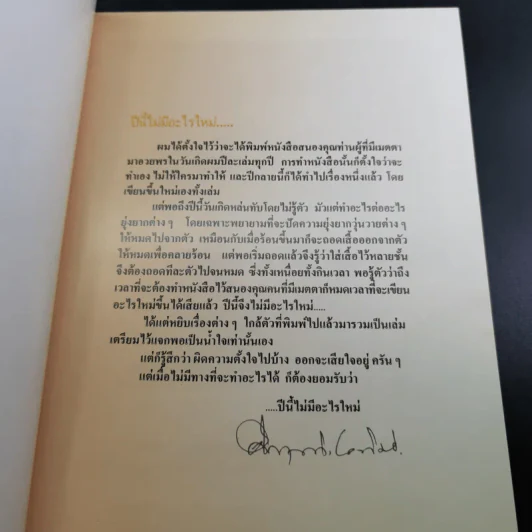 ปีนี้ไม่มีอะไรใหม่.....
ผมได้ตั้งใจไว้ว่าจะได้พิมพ์หนังสือสนองคุณท่านผู้ที่มีเมตตา
มาอวยพรในวันเกิดผมปีละเล่มทุกปี การทำหนังสือนั้นก็ตั้งใจว่าจะ
ทำเอง ไม่ให้ใครมาทำให้ และปีกลายนี้ก็ได้ทำไปเรื่องหนึ่งแล้ว โดย
เขียนขึ้นใหม่เองทั้งเล่ม
แต่พอถึงปีนี้วันเกิดหล่นทับโดยไม่รู้ตัว มัวแต่ทำอะไรต่ออะไร
ยุ่งยากต่าง ๆ โดยเฉพาะพยายามที่จะปัดความยุ่งยากวุ่นวายต่าง ๆ
ให้หมดไปจากตัว เหมือนกับเมื่อร้อนขึ้นมาก็จะถอดเสื้อออกจากตัว
ให้หมดเพื่อคลายร้อน แต่พอเริ่มถอดแล้วจึงรู้ว่าใส่เสื้อไว้หลายชั้น
จึงต้องถอดทีละตัวไปจนหมด ซึ่งทั้งเหนื่อยทั้งกินเวลา พอรู้ตัวว่าถึง
เวลาที่จะต้องทำหนังสือไว้สนองคุณคนที่มีเมตตาก็หมดเวลาที่จะเขียน
อะไรใหม่ขึ้นได้เสียแล้ว ปีนี้จึงไม่มีอะไรใหม่.....
ได้แต่หยิบเรื่องต่าง ๆ ใกล้ตัวที่พิมพ์ไปแล้วมารวมเป็นเล่ม
เตรียมไว้แจกพอเป็นน้ำใจเท่านั้นเอง
แต่ก็รู้สึกว่า ผิดความตั้งใจไปบ้าง ออกจะเสียใจอยู่ ครัน ๆ
แต่เมื่อไม่มีทางที่จะทำอะไรได้ ก็ต้องยอมรับว่า
.....ปีนี้ไม่มีอะไรใหม่